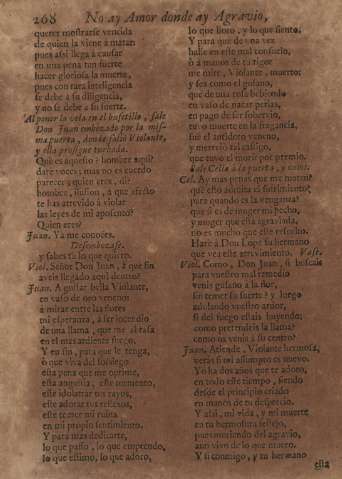 268 No ay Amor donde ay Agravio,
querer mostrarse vencida
de quien la viene à matar
pues assi llega à causar
en una pena tan fuerte
hacer gloriosa la muerte,
pues con rara inteligencia
se debe à su diligencia,
y no se debe a su suerte.
Al poner la vela en el bufetillo, sale
Don Juan embozado por la mis-
ma puerta, donde salió Violante,
y ella prosigue turbada.
Què es aquesto? hombre aqui?
darè voces; mas no es cuerdo
parecer; quien eres, dì,
hombre, ilusion, à que efecto
te has atrevido à violar
las leyes de mi aposento?
Quien eres?
Juan. Ya me conoces.
Desembozase.
y sabes tu lo que quiero.
Viol. Señor Don Juan, à què fin
aveis llegado aqui dentro?
Juan. A gustar bella Violante,
en vaso de oro veneno;
à mirar entre las flores
mi esperanza, à ser incendio
de una llama, que me abrasa
en el mas ardiente fuego.
Y en fin, para que le tenga,
ò que viva del sossiego
esta pena que me oprime,
esta angustia, este tormento,
este idolatrar tus rayos,
este adorar tus reflexos,
este temer mi ruina
en mi proprio sentimiento.
Y para mas dedicarte,
lo que passo, lo que emprendo,
lo que estimo, lo que adoro,
lo que lloro, y lo que siento.
Y para que de una vez
halle en este mal consuelo,
ò à manos de tu rigor
me mire, Violante, muerto;
y sea como el gusano,
que de una rosa bebiendo
en vaso de nacar perlas,
en pago de ser sobervio,
tuvo muerte en la fragancia,
fue el artidoto veneno,
y mereciò tal castigo,
que tuvo el morir por premio.
Sale Celia à la puerta, y
Cel. Ay mas penas que me matan?
què esto admita el sufrimiento?
para quando es la venganza?
que si es de muger mi pecho,
y muger que està agraviada,
no es mucho que este resuelto.
Harè à Don Lope su hermano
que vea este atrevimiento. Vase.
Viol. Como, Don Juan, si buscais
para vuestro mal remedio
venis guiado à la flor,
sin temer su fuerza? y luego
ayudando vuestro ardor,
si del fuego estais huyendo;
como pretendeis la llama?
como os venis à su centro?
Juan. Atiende, Violante hermosa,
veràs si mi assumpto es nuevo.
Yo ha dos años que te adoro,
en todo este tiempo, siendo
desde el principio criado
en manos de tu desprecio.
Y assi, mi vida, y mi muerte
en tu hermosura festejo,
pues muriendo del agravio,
aun vivo de lo que muero.
Y si conmigo, y tu hermano
esta